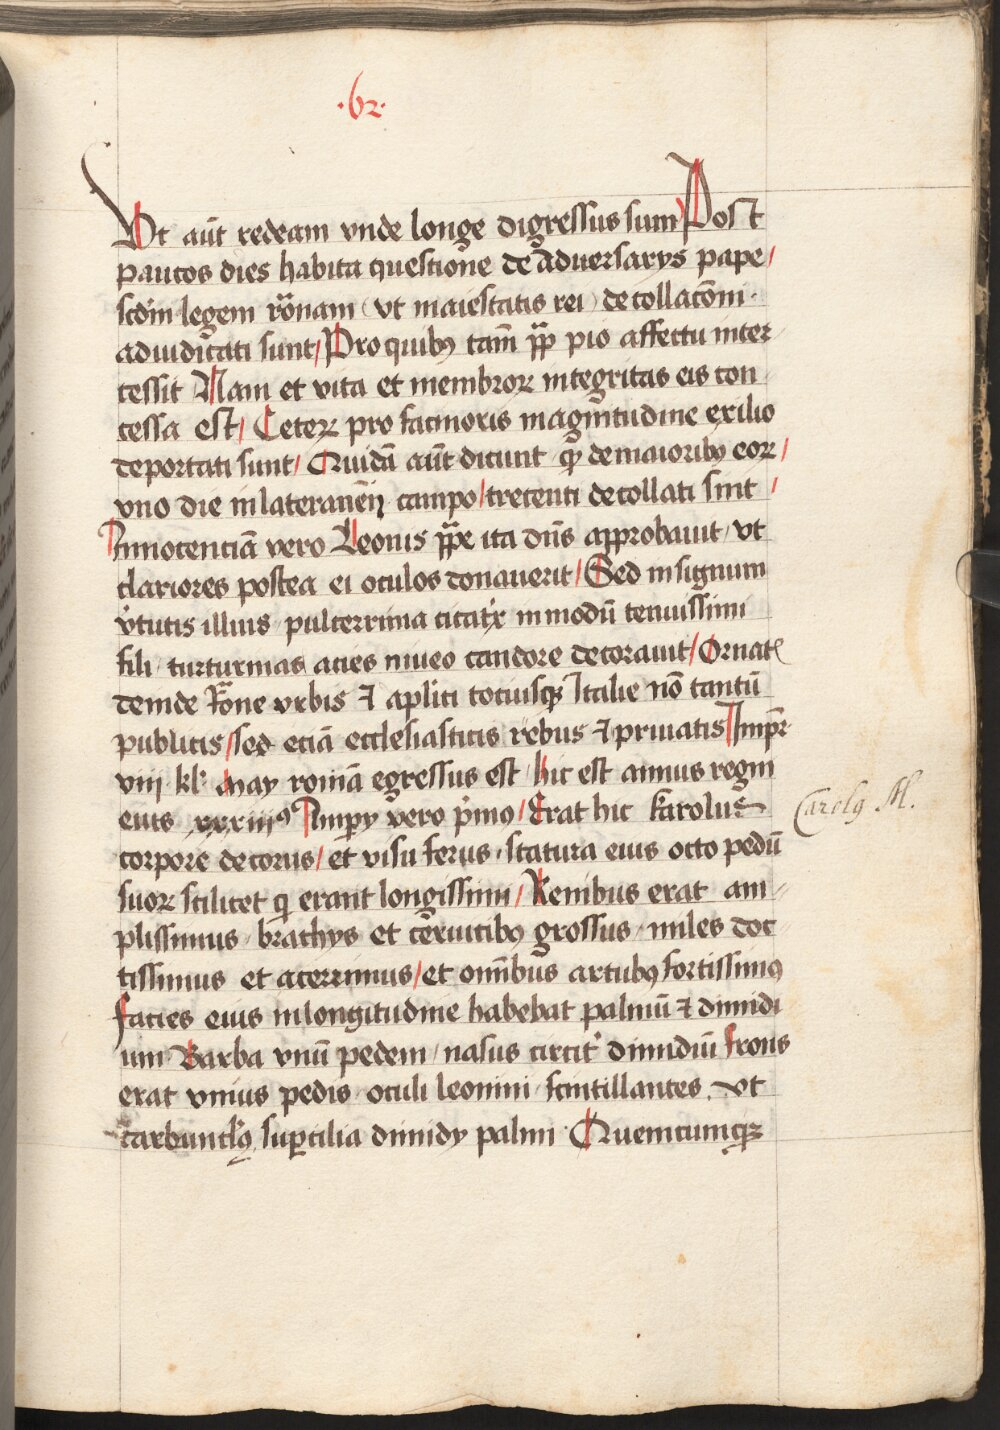 ·62·
Vt aūt redeam vnde longe digressus sum Post
paucos dies habita questione de Aduersarys pape/
scd'm legem rōnam (vt maiestatis rei) decollacōni·
adiudicati sunt/ Pro quibꝯ tam̄ pp̄ pio affectu inter
cessit Nam et vita et membroꝝ integritas eis con
cessa est/ Ceteꝝ pro facinoris magnitudine exilio
deportati sunt/ Quidā aūt dicunt ꝙ de maioribꝯ eoꝝ/
vno die in lateraneñ campo/ trecenti decollati sint /
Innocenciā vero Leonis pp̄e ita dn̄s approbauit / vt
clariores postea ei oculos donauerit/ Sed in signum
v̓tutis illius pulcerrima cicat̓x in modū tenuissimi
fili turturinas acies niueo candore decorauit/ Ornatꝭ
deinde Rōne vrbis ⁊ apl̄ici tociusqꝫ Italie nō tantū
publicis/ sed eciā ecclesiasticis rebus ⁊ priuatis Imp̄r
viij kl' may romā egressus est / hic est annus regni
eius xxxiiiꝰ Impij vero p̓mo/ Erat hic karolus
corpore decorus/ et visu ferus · statura eius octo pedū
suoꝝ scilicet q̄ erant longissimi/ Renibus erat am
plissimus · brachys et ceruicibꝯ grossus · miles doc
tissimus et acerrimus/ et om̄ibus artubꝯ fortissimꝯ
facies eius in longitudine habebat palmū ⁊ dimidi
um Barba vnū pedem / nasus circit̓ dimidiū frons
erat vnius pedis · oculi leonini · scintillantes. vt
carbunclꝯ, suꝑcilia dimidy palmi Quemcumqꝫ
Carolꝯ M.